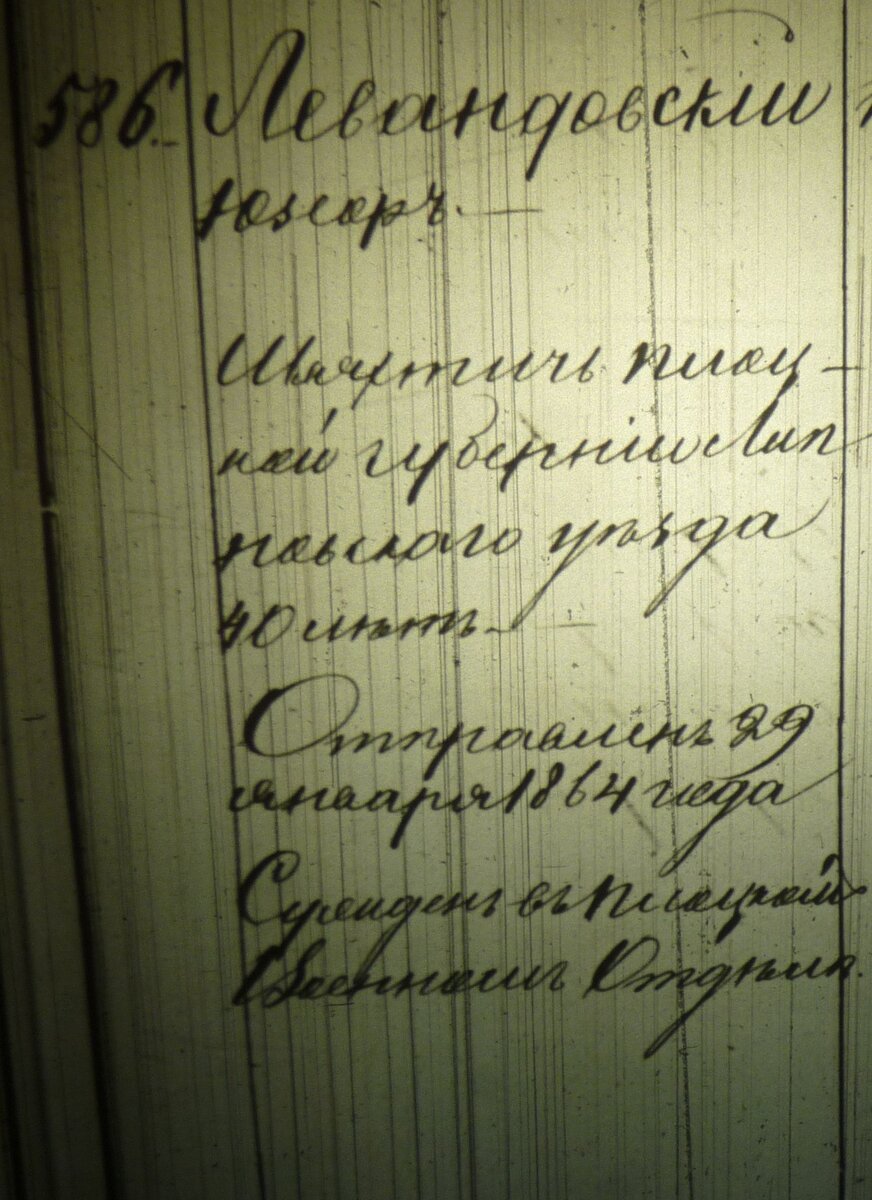 586. Левандовскій
Юзефъ. —
Шляхтичъ Плоц-
кой губерніи Лип
новскаго уѣзда
40 лѣтъ. —
Отправленъ 29
января 1864 года
Сужденъ въ Плоцкомъ
Военномъ Отдѣлѣ.